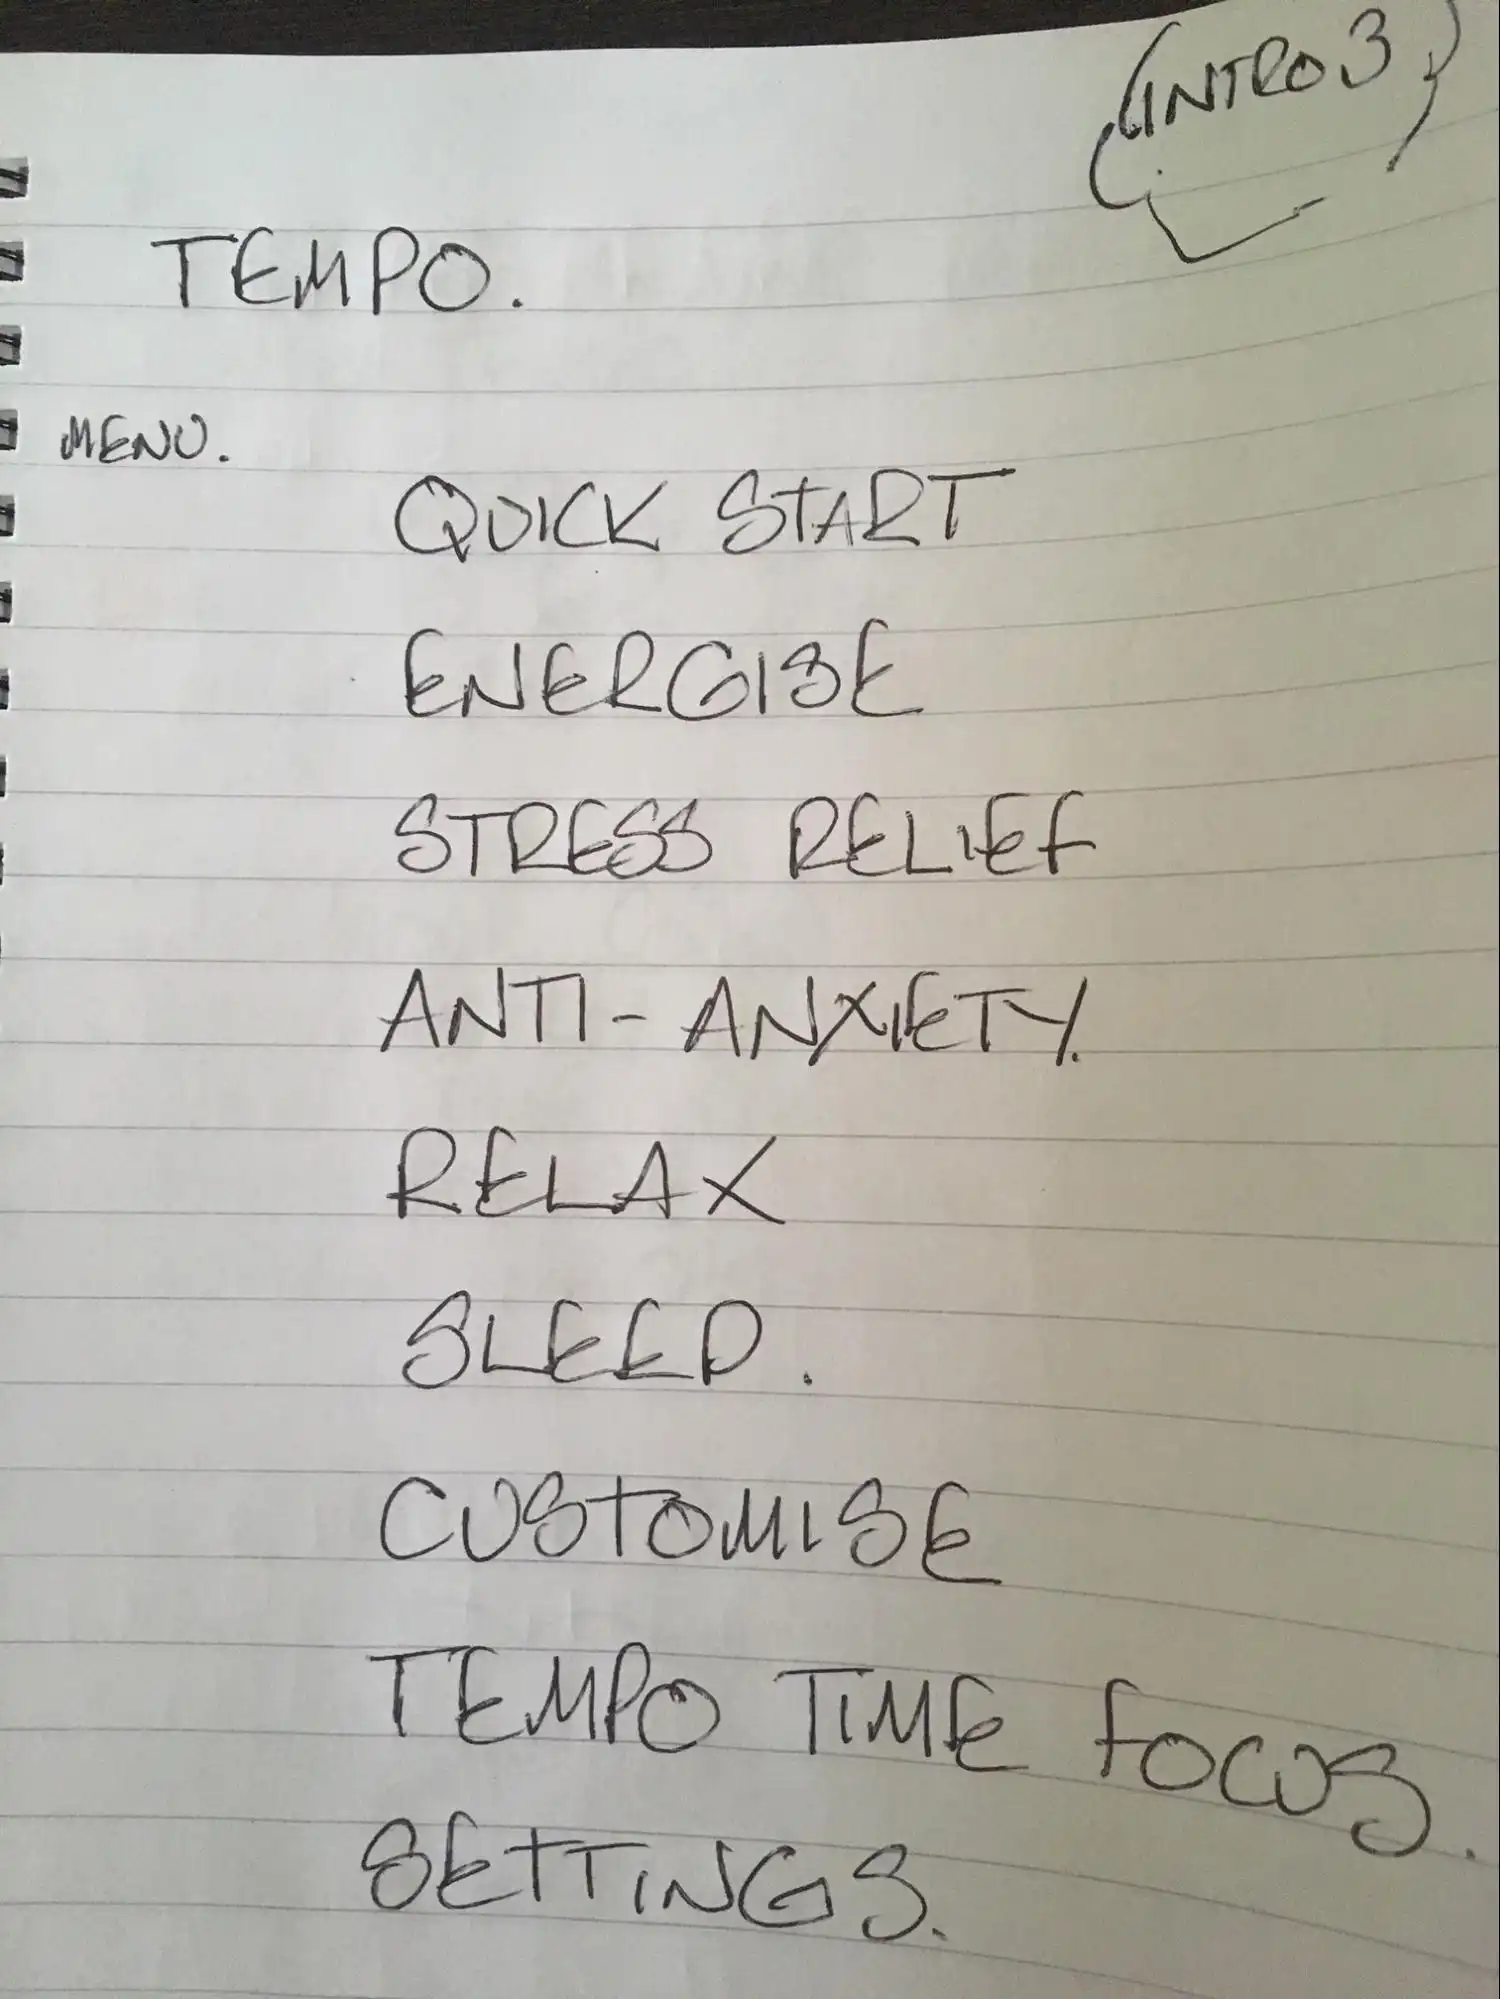 (INTRO 3)
TEMPO.
MENU.
QUICK START
ENERGISE
STRESS RELIEF
ANTI-ANXIETY.
RELAX
SLEEP.
CUSTOMISE
TEMPO TIME FOCUS.
SETTINGS.